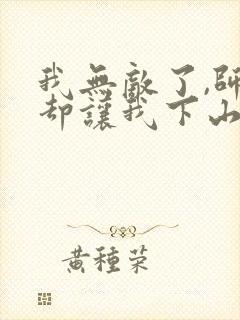 我無敵了,師
却讓我下山
黄種荣